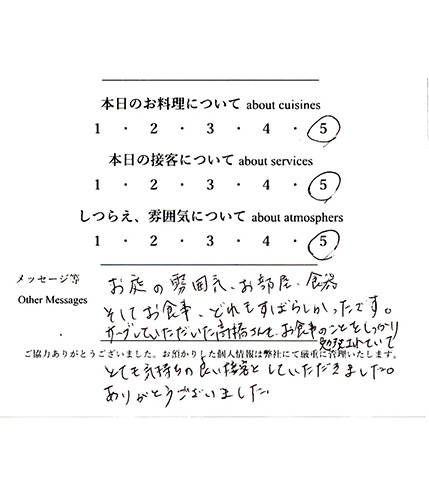 本日のお料理について about cuisines
1 ・ 2 ・ 3 ・ 4 ・ 5
本日の接客について about services
1 ・ 2 ・ 3 ・ 4 ・ 5
しつらえ、雰囲気について about atmosphers
1 ・ 2 ・ 3 ・ 4 ・ 5
メッセージ等
Other Messages
お庭の雰囲気、お部屋、食器
そしてお食事、どれもすばらしかったです。
サーブしていただいた高橋さんも、お食事のことをしっかり
勉強されていて
ご協力ありがとうございました。お預かりした個人情報は弊社にて厳重に管理いたします。
とても気持ちの良い接客をしていただきました。
ありがとうございました。